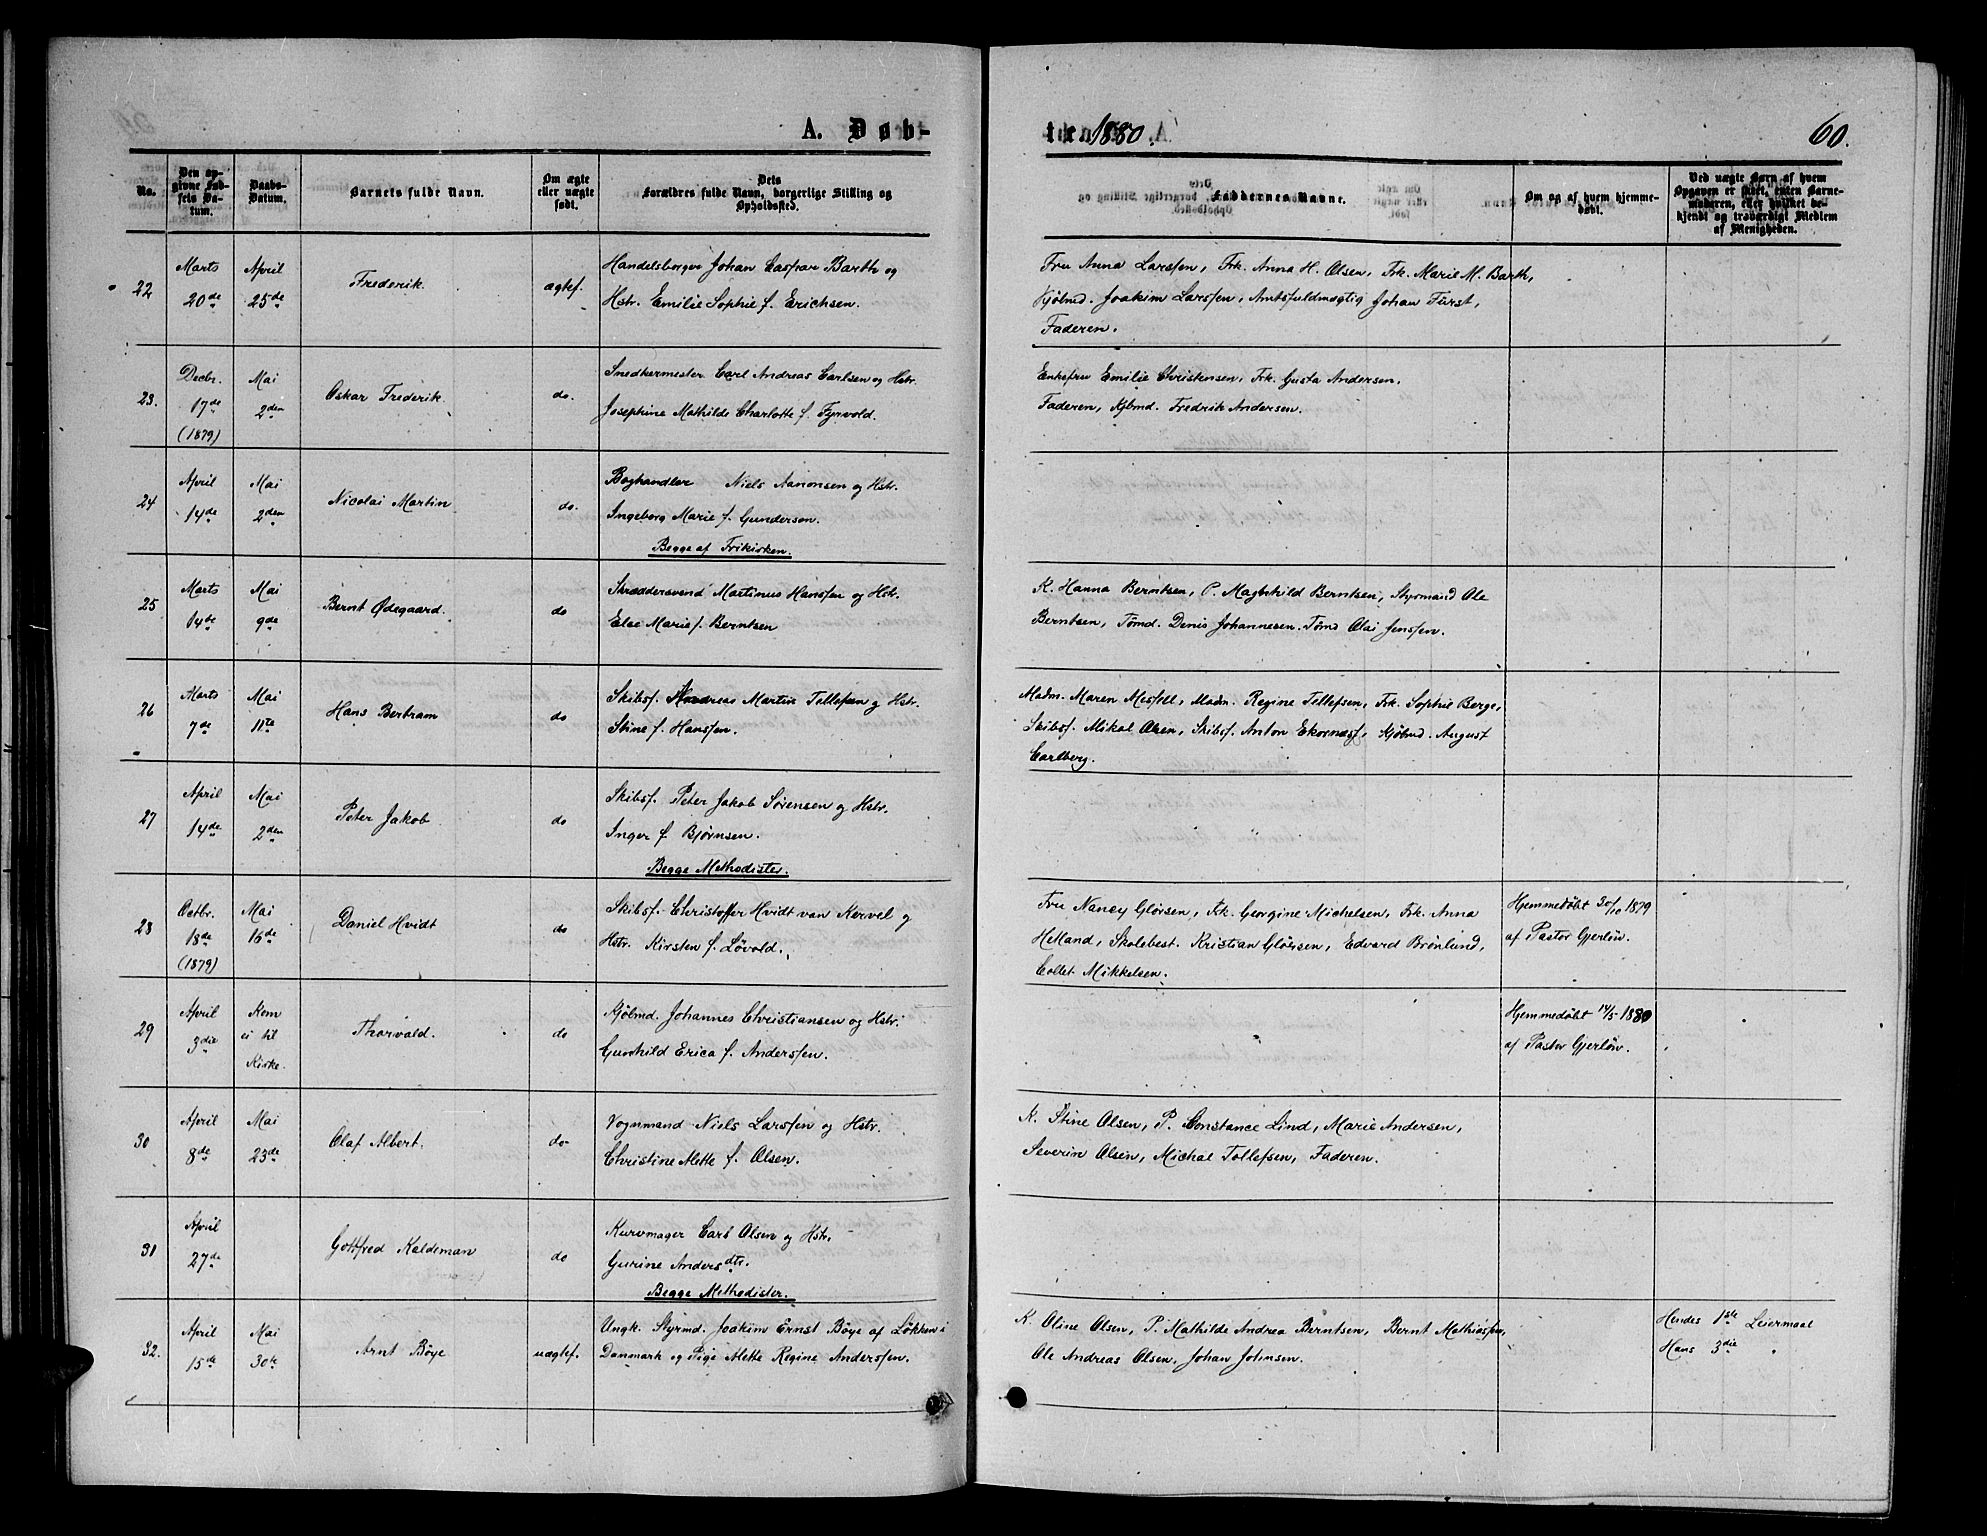 A. Døb-
te 1880.
60.
No.
Den op-
givne Fød-
sels Da-
tum.
Daabs-
Datum.
Barnets fulde Navn.
Om ægte
eller uægte
født.
Dets
Forældres fulde Navn, borgerlige Stilling og
Opholdssted.
Faddernes Navne.
Om og af hvem hjemme-
døbt.
Ved uægte Børn af hvem
Opgaven er skeet, enten Barne-
moderen, eller hvilket be-
kjendt og troværdigt Medlem
af Menigheden.
22
Marts
20de
April
25de
Frederik
ægtef.
Handelsborger Johan Caspar Barth og
Hstr. Emilie Sophie f. Erichsen.
Fru Anna Larssen, Frk. Anna H. Olsen, Frk. Marie M. Barth,
Kjøbmd. Joakim Larssen, Amtsfuldmægtig Johan Fürst,
Faderen.
23.
Decbr.
17de
(1879)
Mai
2den
Oskar Frederik
do.
Snedkermester Carl Andreas Carlsen og Hstr.
Josephine Mathilde Charlotte f. Fyrvold.
Enkefru Emilie Christensen, Frk. Gusta Andersen.
Faderen, Kjøbmd. Fredrik Andersen.
24
April
14de
Mai
2den
Nicolai Martin
do.
Boghandler Niels Aanonsen og Hstr.
Ingeborg Marie f. Gundersen.
Begge af Frikirken.
25
Marts
14de
Mai
9de
Bernt Ødegaard.
do
Skræddersvend Martinus Hanssen og Hstr.
Else Marie f. Berntsen
K. Hanna Berntsen, P. Maghild Berntsen, Styrmand Ole
Berntsen, Tømd. Denis Johannesen. Tømd Olai Jenssen.
26
Marts
7de
Mai
11te
Hans Bertram
do
Skibsf. Andreas Martin Tollefsen og Hstr.
Stine f. Hanssen.
Madm. Maren Mesfell, Madm. Regine Tellefsen, Frk. Sophie Berge,
Skibsf. Mikal Olsen, Skibsf. Anton Ekornæs, Kjøbmd. August
Carlberg.
27
April
14de
Mai
2den
Peter Jakob
do
Skibsf. Peter Jakob Sørensen og Hstr.
Inger f. Bjørnsen.
Begge Methodister.
28
Octbr.
18de
(1879)
Mai
16de
Daniel Hvidt
do
Skibsf. Christoffer Hvidt van Kervel og
Hstr. Kirsten f. Løvold.
Fru Nancy Glørsen, Frk. Georgine Michelsen, Frk. Anna
Helland, Skolebest. Kristian Glørsen, Edvard Brønlund,
Collet Mikkelsen.
Hjemmedøbt 30/10 1879
af Pastor Gjerløw.
29
April
3die
Kom
ei til
Kirke.
Thorvald.
do
Kjøbmd. Johannes Christiansen og Hstr.
Gunhild Erica f. Anderssen.
Hjemmedøbt 14/5 1880
af Pastor Gjerløw.
30
April
8de
Mai
23de
Olaf Albert.
do-
Vognmand Niels Larssen og Hstr.
Christine Mette f. Olsen.
K. Stine Olsen, P. Constance Lind, Marie Andersen,
Severin Olsen, Michal Tollefsen, Faderen.
31
April
27de
Gottfred Kaldeman
do
Kurvmager Carl Olsen og Hstr.
Gurine Andersdtr.
Begge Methodister.
32.
April
15de
Mai
30te
Arnt Bøye
uægtef.
Ungk. Styrmd. Joakim Ernst Bøye af Løkken i
Danmark og Pige Mette Regine Anderssen.
K. Oline Olsen, P. Mathilde Andrea Berntsen, Bernt Mathiassen,
Ole Andreas Olsen, Johan Johnsen.
Hendes 1ste Leiermaal
Hans 3die "